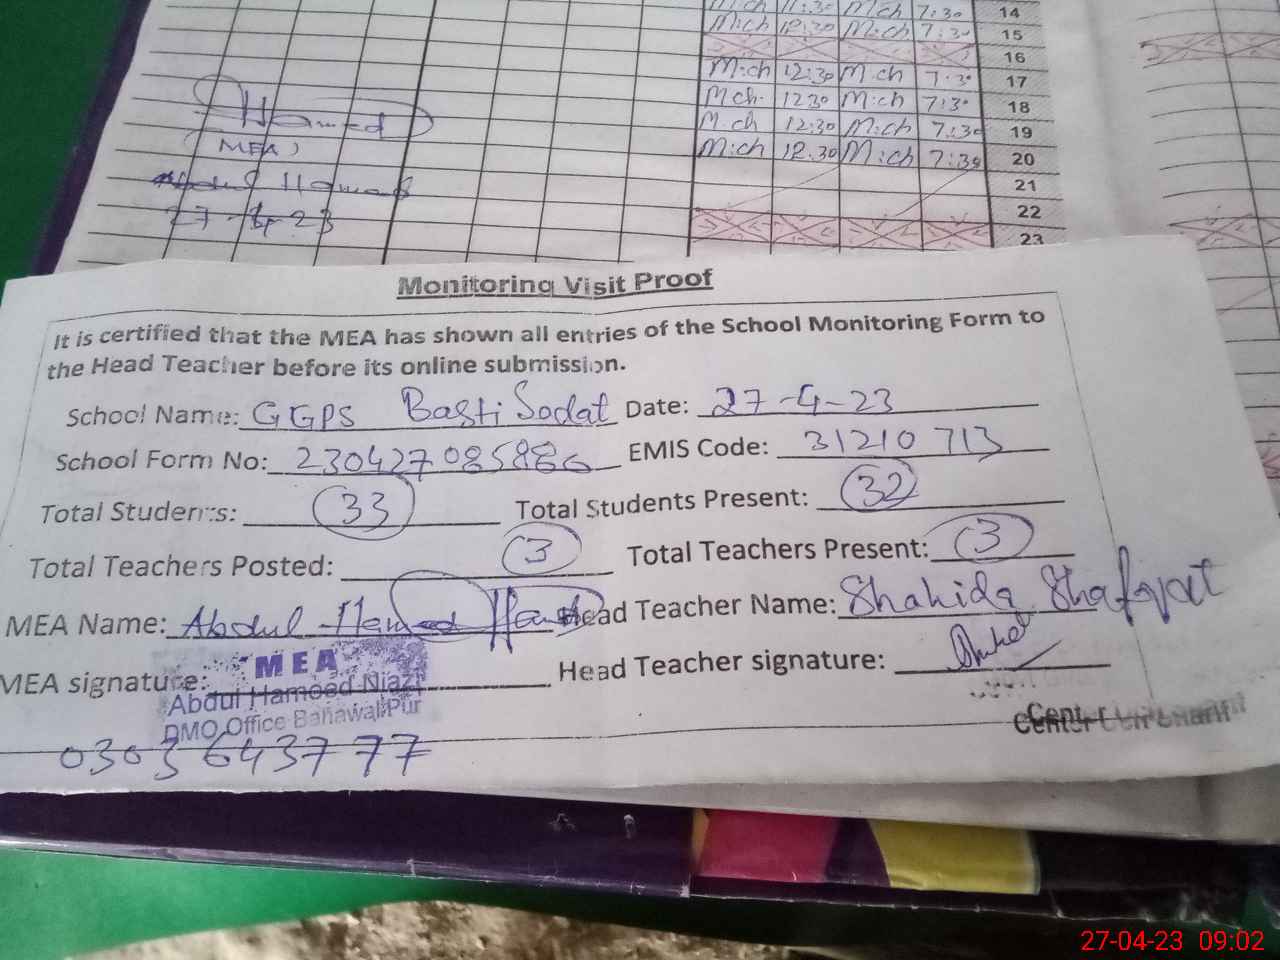 M:ch 11:30 M:ch 7:30 14
M:ch 12:30 M:ch 7:30 15
16
M:ch 12:30 M:ch 7:30 17
M:ch 12:30 M:ch 7:30 18
M:ch 12:30 M:ch 7:30 19
M:ch 12:30 M:ch 7:30 20
21
22
23
Hamed
(MEA)
Abdul Hameed
27-4-23
Monitoring Visit Proof
It is certified that the MEA has shown all entries of the School Monitoring Form to
the Head Teacher before its online submission.
School Name: GGPS Basti Sadat Date: 27-4-23
School Form No: 230427085886 EMIS Code: 31210713
Total Students: 33 Total Students Present: 32
Total Teachers Posted: 3 Total Teachers Present: 3
MEA Name: Abdul Hameed Head Teacher Name: Shahida Shafqat
MEA signature: Head Teacher signature:
MEA
Abdul Hameed Niazi
DMO Office BahawalPur
Center Uch Sharif
0303 6437777
27-04-23 09:02